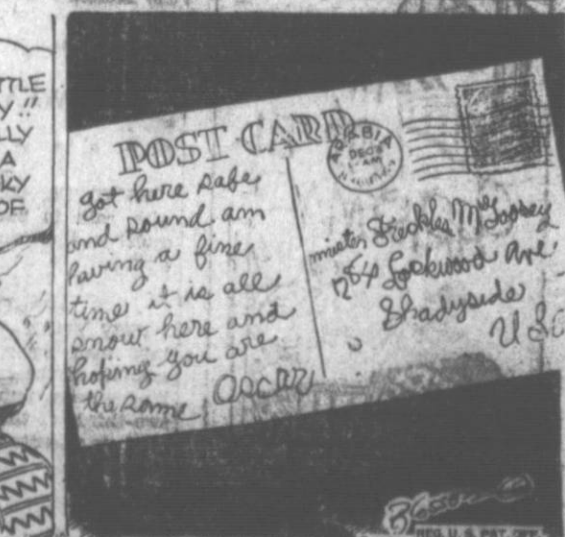 TTLE
Y!!
LLY
A
KY
OF
POST CARD
got here safe
and sound am
having a fine
time it is all
snow here and
hoping you are
the same Oscar
ARABIA
DEC
AM
mister Freckles McGoosey
Lockwood Ave
Shadyside
U S
REG. U. S. PAT. OFF.